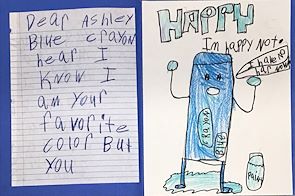 Dear Ashley
Blue crayon
hear I
Know I
am your
favorite
color But
you
HAPPY
Im happy Not.
I have no
CRAYON
BLUE
PAINT